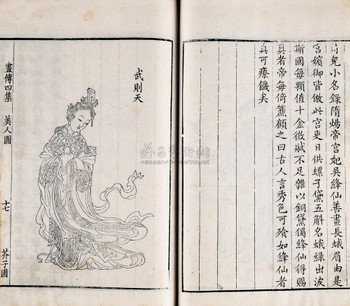 兒小名錄隋煬帝宮妃吳絳仙善畫長蛾眉由是
宮嬪御皆倣此宮吏日供螺子黛五斛名蛾綠出波
斯國每顆值十金徵賦不足雜以銅黛獨絳仙得賜
真者帝每倚簾顧之曰古人言秀色可飧如絳仙者
真可療饑矣
武則天
畫傳四集 美人圖 十七 芥子園